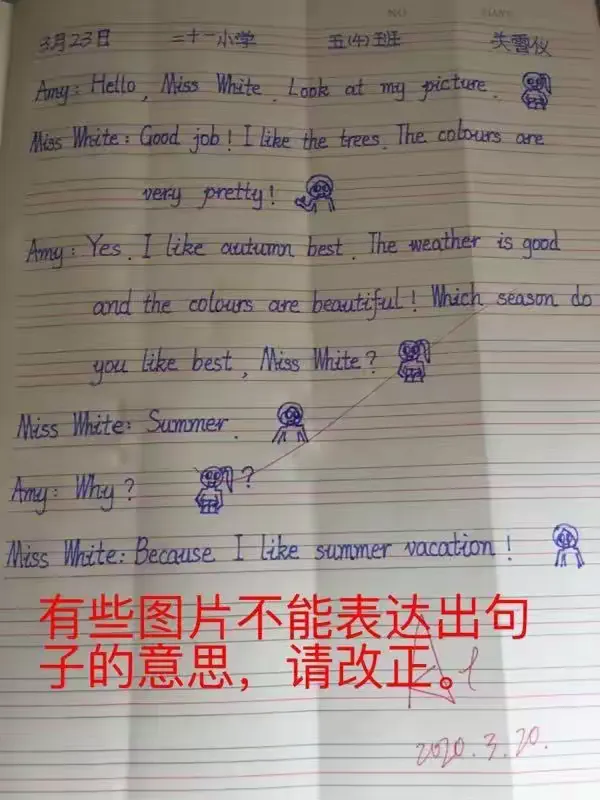 NO
DATE
3月23日 二十一小学 五(4)班
Amy: Hello, Miss White. Look at my picture.
Miss White: Good job! I like the trees. The colours are
very pretty!
Amy: Yes. I like autumn best. The weather is good
and the colours are beautiful! Which season do
you like best, Miss White?
Miss White: Summer.
Amy: Why? ?
Miss White: Because I like summer vacation!
有些图片不能表达出句
子的意思，请改正。
2020.3.20.